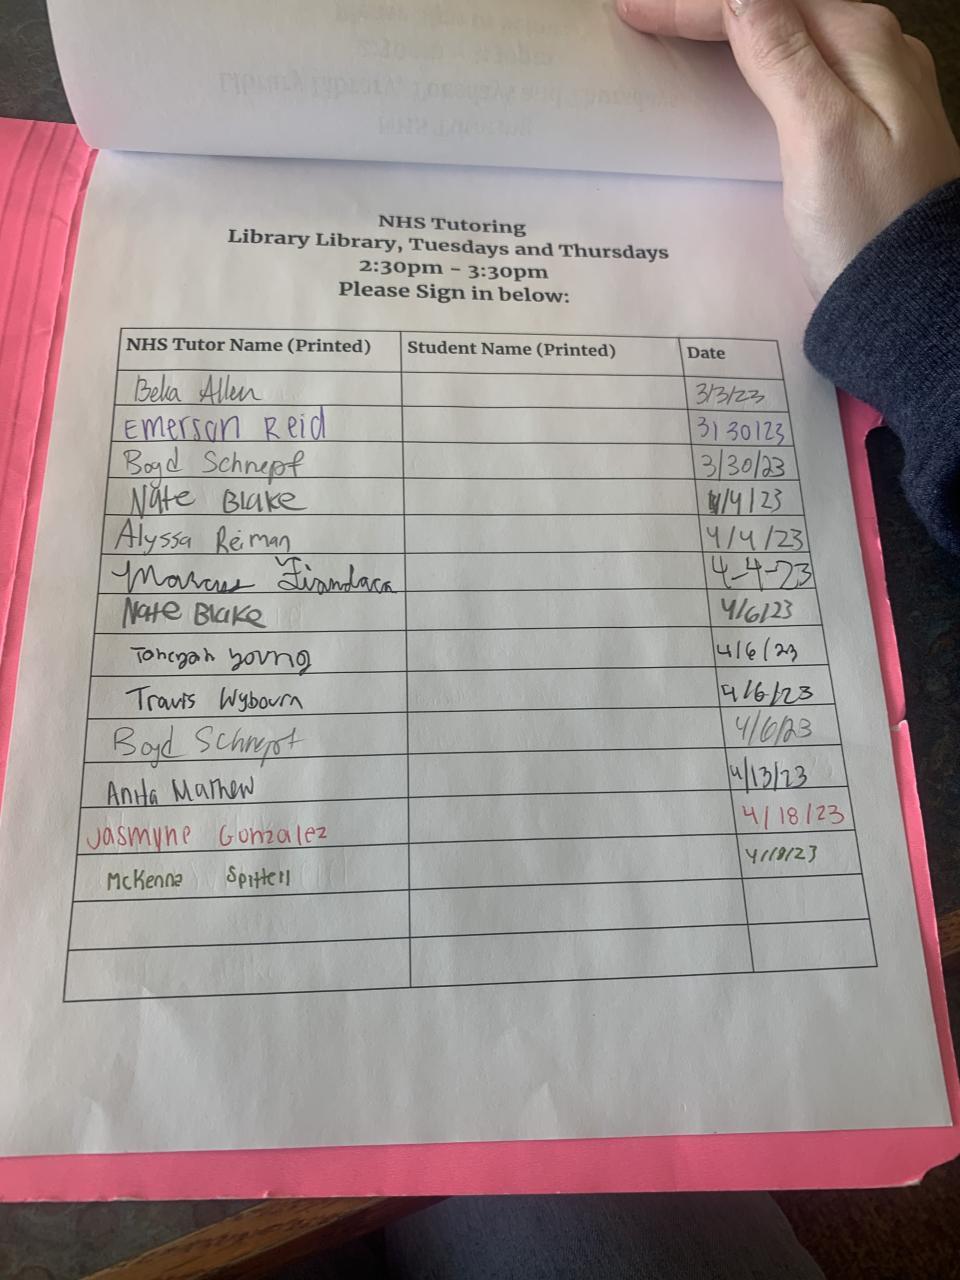 NHS Tutoring
Library Library, Tuesdays and Thursdays
2:30pm - 3:30pm
Please Sign in below:
NHS Tutor Name (Printed) Student Name (Printed) Date
Beka Allen 3/3/23
Emerson Reid 3/30/23
Boyd Schnepf 3/30/23
Nate Blake 4/4/23
Alyssa Reiman 4/4/23
Marcus 4-4-23
Nate Blake 4/6/23
Young 4/6/23
Travis Wybourn 4/6/23
Boyd Schnepf 4/6/23
Anita Mathew 4/13/23
Jasmyne Gonzalez 4/18/23
McKenna Spittell 4/18/23